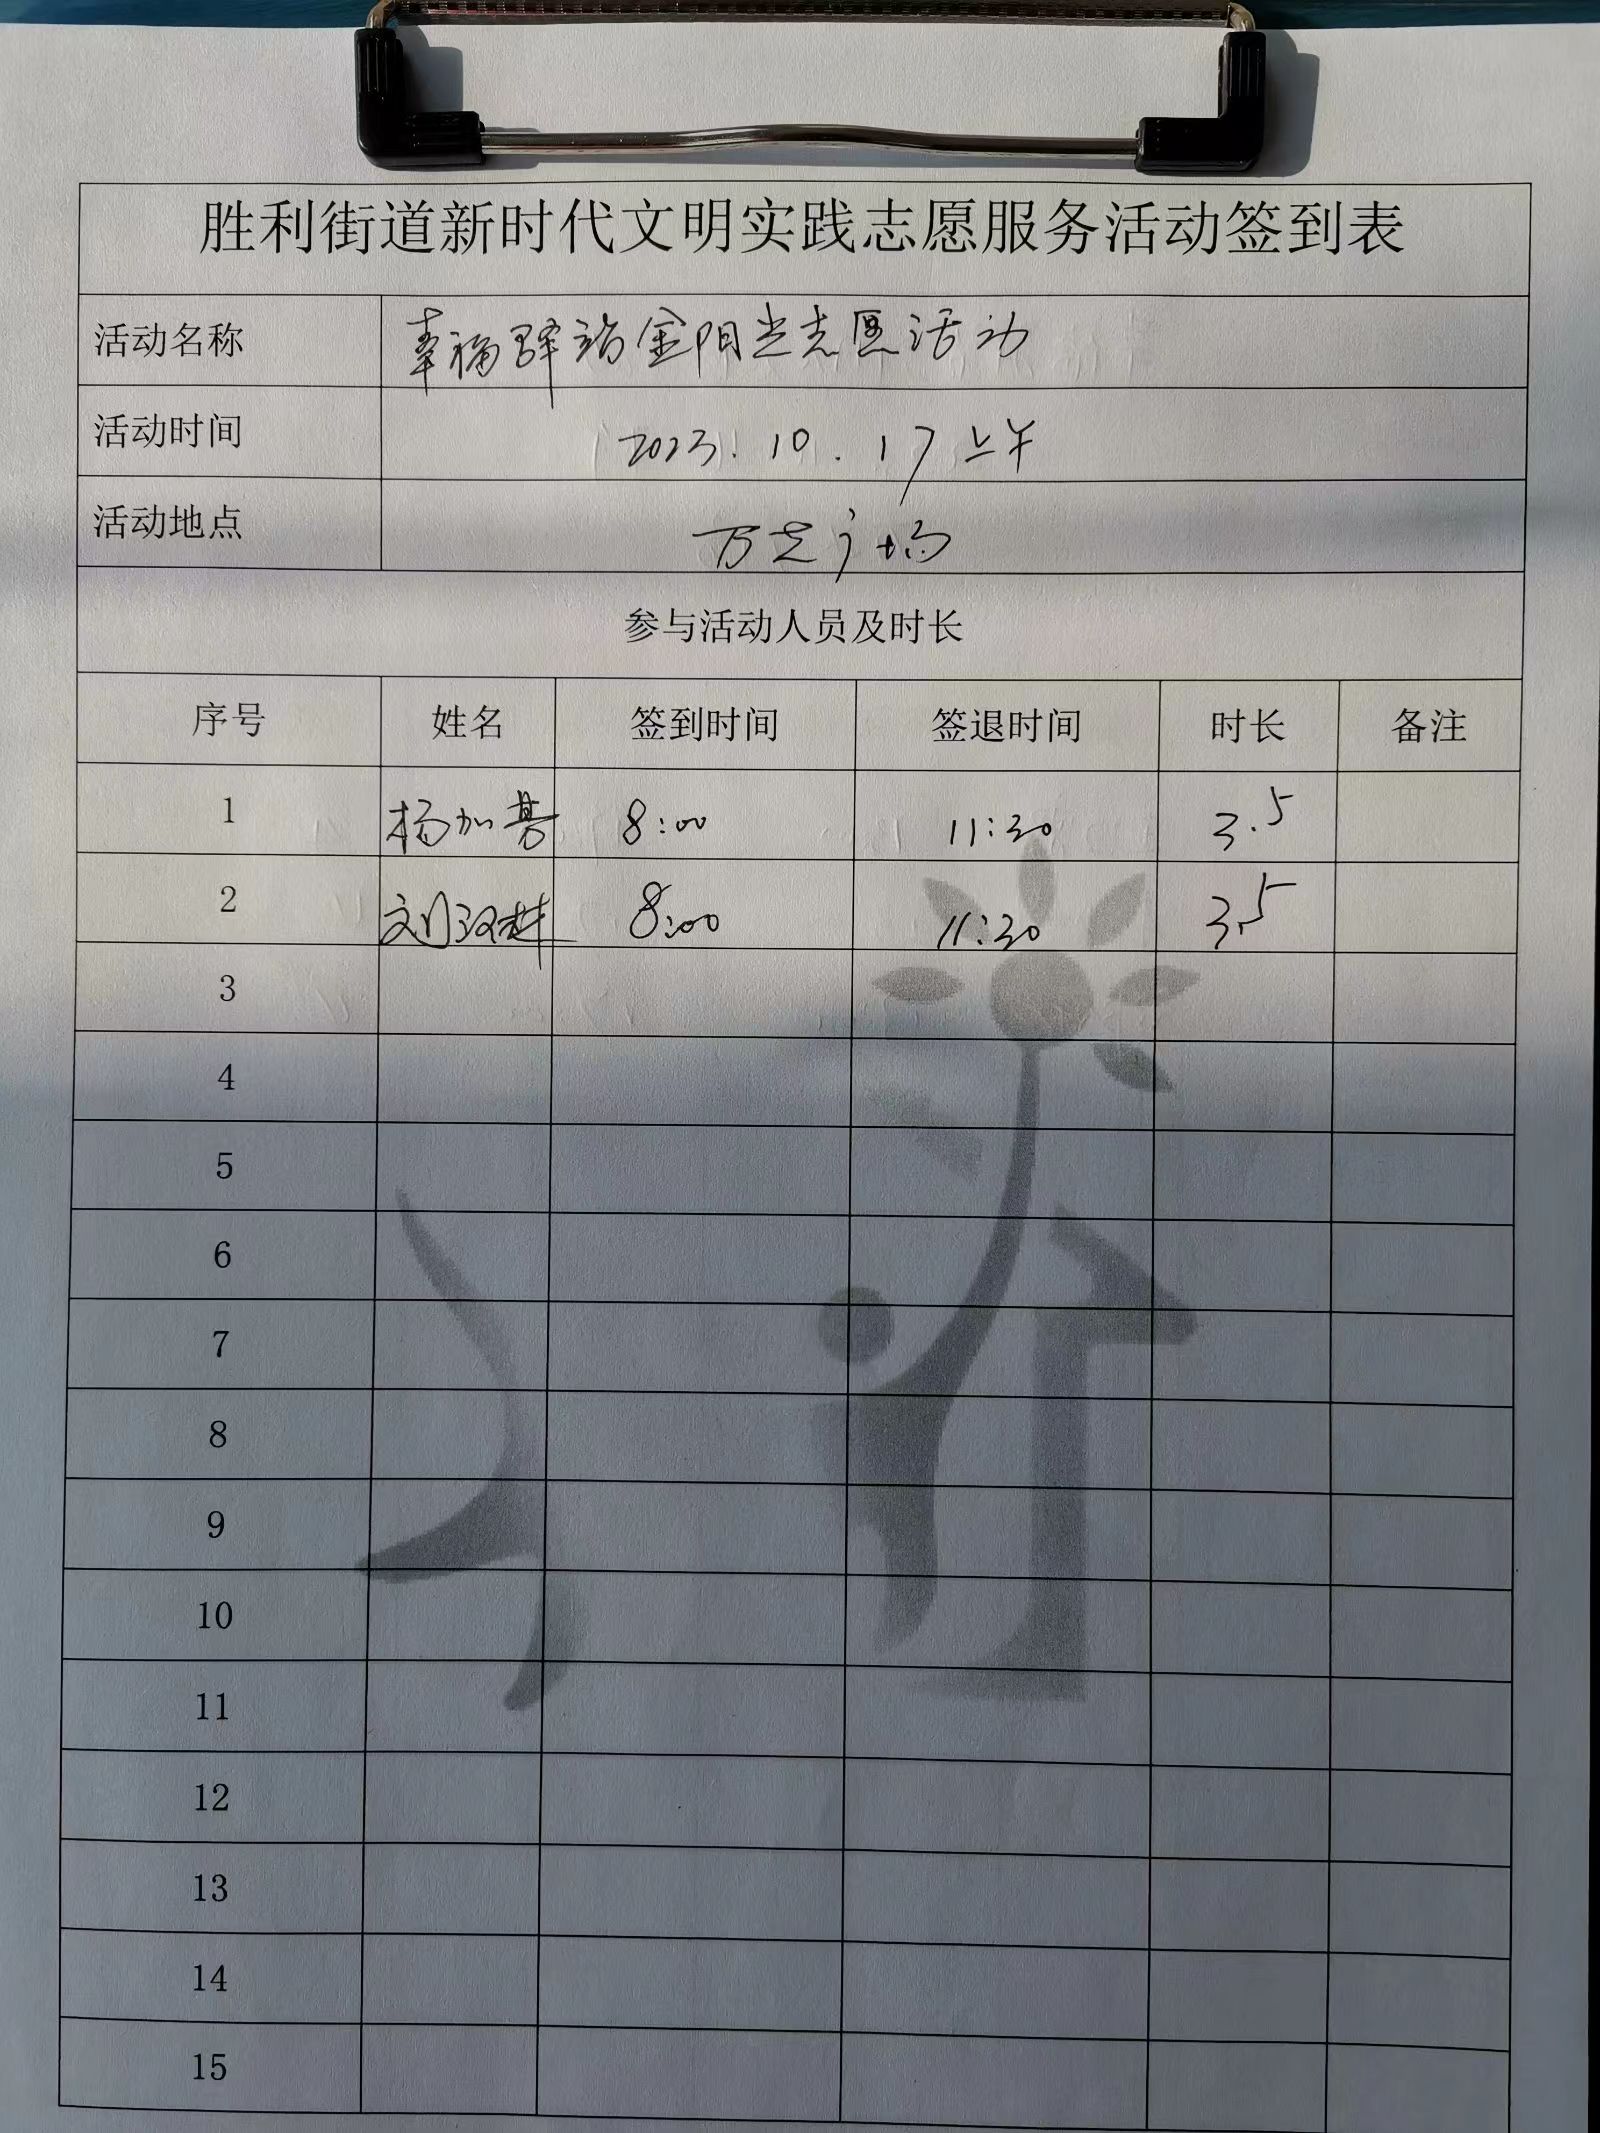 胜利街道新时代文明实践志愿服务活动签到表
活动名称 幸福驿站金阳光志愿活动
活动时间 2023.10.17上午
活动地点 万达广场
参与活动人员及时长
序号 姓名 签到时间 签退时间 时长 备注
1 杨加 8:00 11:30 3.5
2 刘汉 8:00 11:30 3.5
3
4
5
6
7
8
9
10
11
12
13
14
15